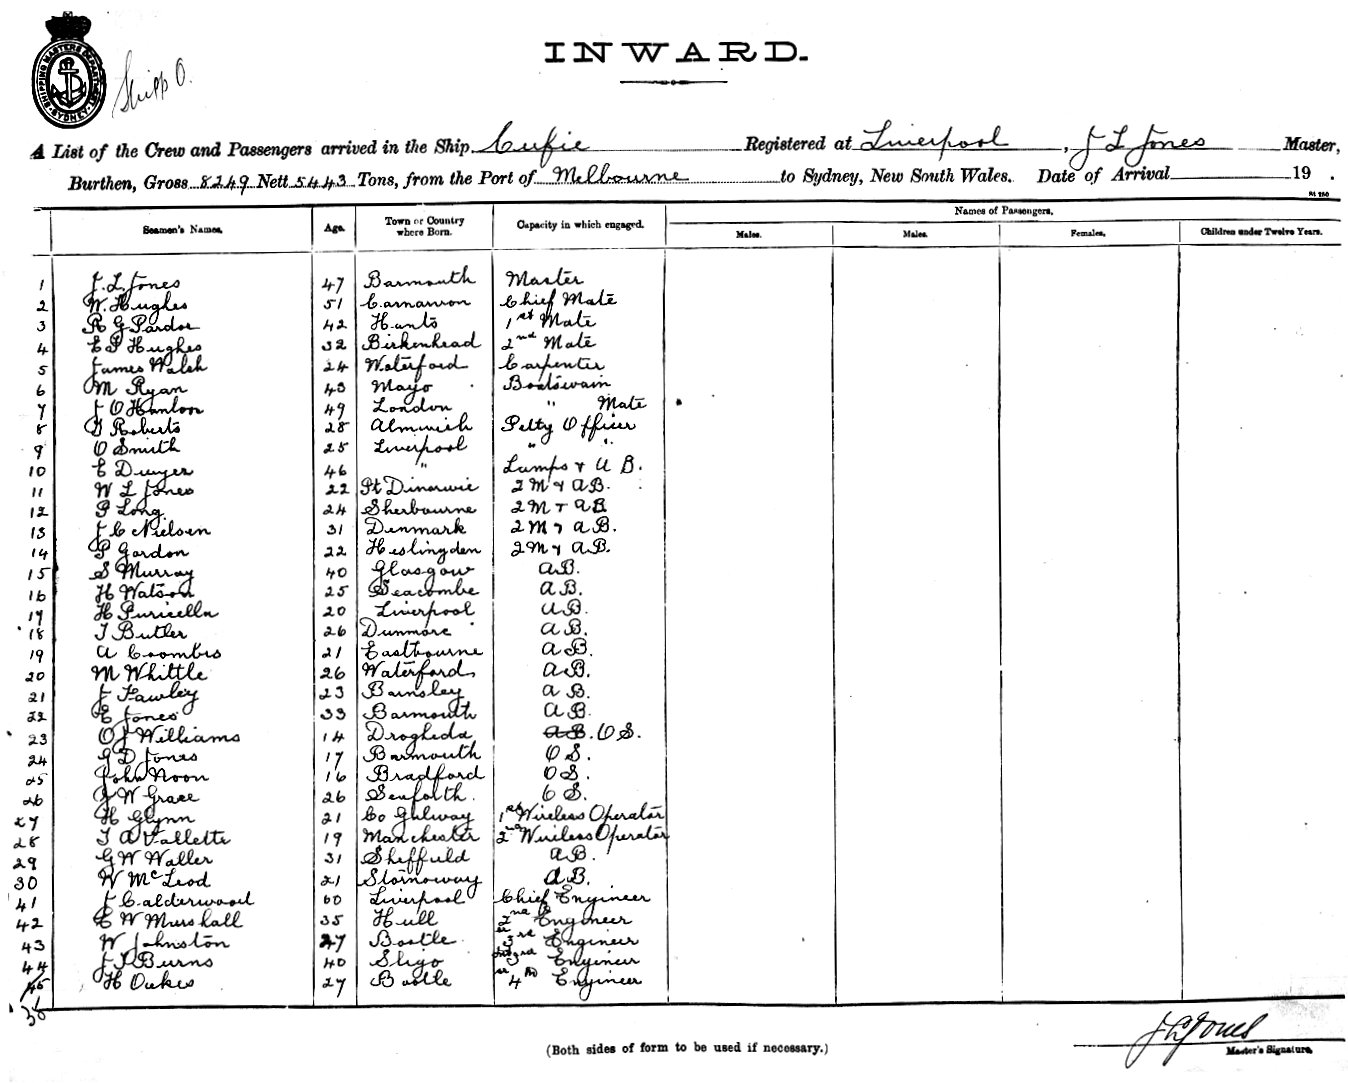 SHIPPING MASTERS DEPARTMENT SYDNEY
Shipp O.
INWARD.
A List of the Crew and Passengers arrived in the Ship Cufic Registered at Liverpool, J L Jones Master,
Burthen, Gross 8249 Nett 5443 Tons, from the Port of Melbourne to Sydney, New South Wales. Date of Arrival 19 .
Seamen's Names. Age. Town or Country where Born. Capacity in which engaged. Names of Passengers.
Males. Males. Females. Children under Twelve Years.
1 J. L. Jones 47 Barmouth Master
2 W. Hughes 51 Carnarvon Chief Mate
3 R G Pardoe 42 Hants 1st Mate
4 E P Hughes 32 Birkenhead 2nd Mate
5 James Walsh 24 Waterford Carpenter
6 M Ryan 43 Mayo Boatswain
7 J O'Hanlon 49 London " Mate
8 G Roberts 28 Almwich Petty Officer
9 O Smith 25 Liverpool " "
10 E Dwyer 46 " Lamps & A B.
11 W L Jones 22 Pt Dinorwic 2 M & A B.
12 P Long 24 Sherbourne 2 M & A B
13 J C Nielsen 31 Denmark 2 M & A B.
14 P Gordon 22 Heslingden 2 M & A B.
15 S Murray 40 Glasgow A B.
16 H Watson 25 Seacombe A B.
17 H Puricella 20 Liverpool A B.
18 T Butler 26 Dunmore A B.
19 A Coombs 21 Eastbourne A B.
20 M Whittle 26 Waterford A B.
21 J Fawley 23 Barnsley A B.
22 E Jones 33 Barmouth A B.
23 O J Williams 14 Drogheda A B. O S.
24 G D Jones 17 Barmouth O S.
25 John Noon 16 Bradford O S.
26 J W Grace 26 Seaforth O S.
27 H Glynn 21 Co Galway 1st Wireless Operator
28 T A Vallette 19 Manchester 2nd Wireless Operator
29 G W Waller 31 Sheffield A B.
30 W McLeod 21 Stornoway A B.
41 J Calderwood 60 Liverpool Chief Engineer
42 E W Murshall 35 Hull 2nd Engineer
43 W Johnston 27 Bootle 3rd Engineer
44 J T Burns 40 Sligo 3rd Engineer
45 H Oukes 27 Bootle 4th Engineer
36
J L Jones
Master's Signature.
(Both sides of form to be used if necessary.)